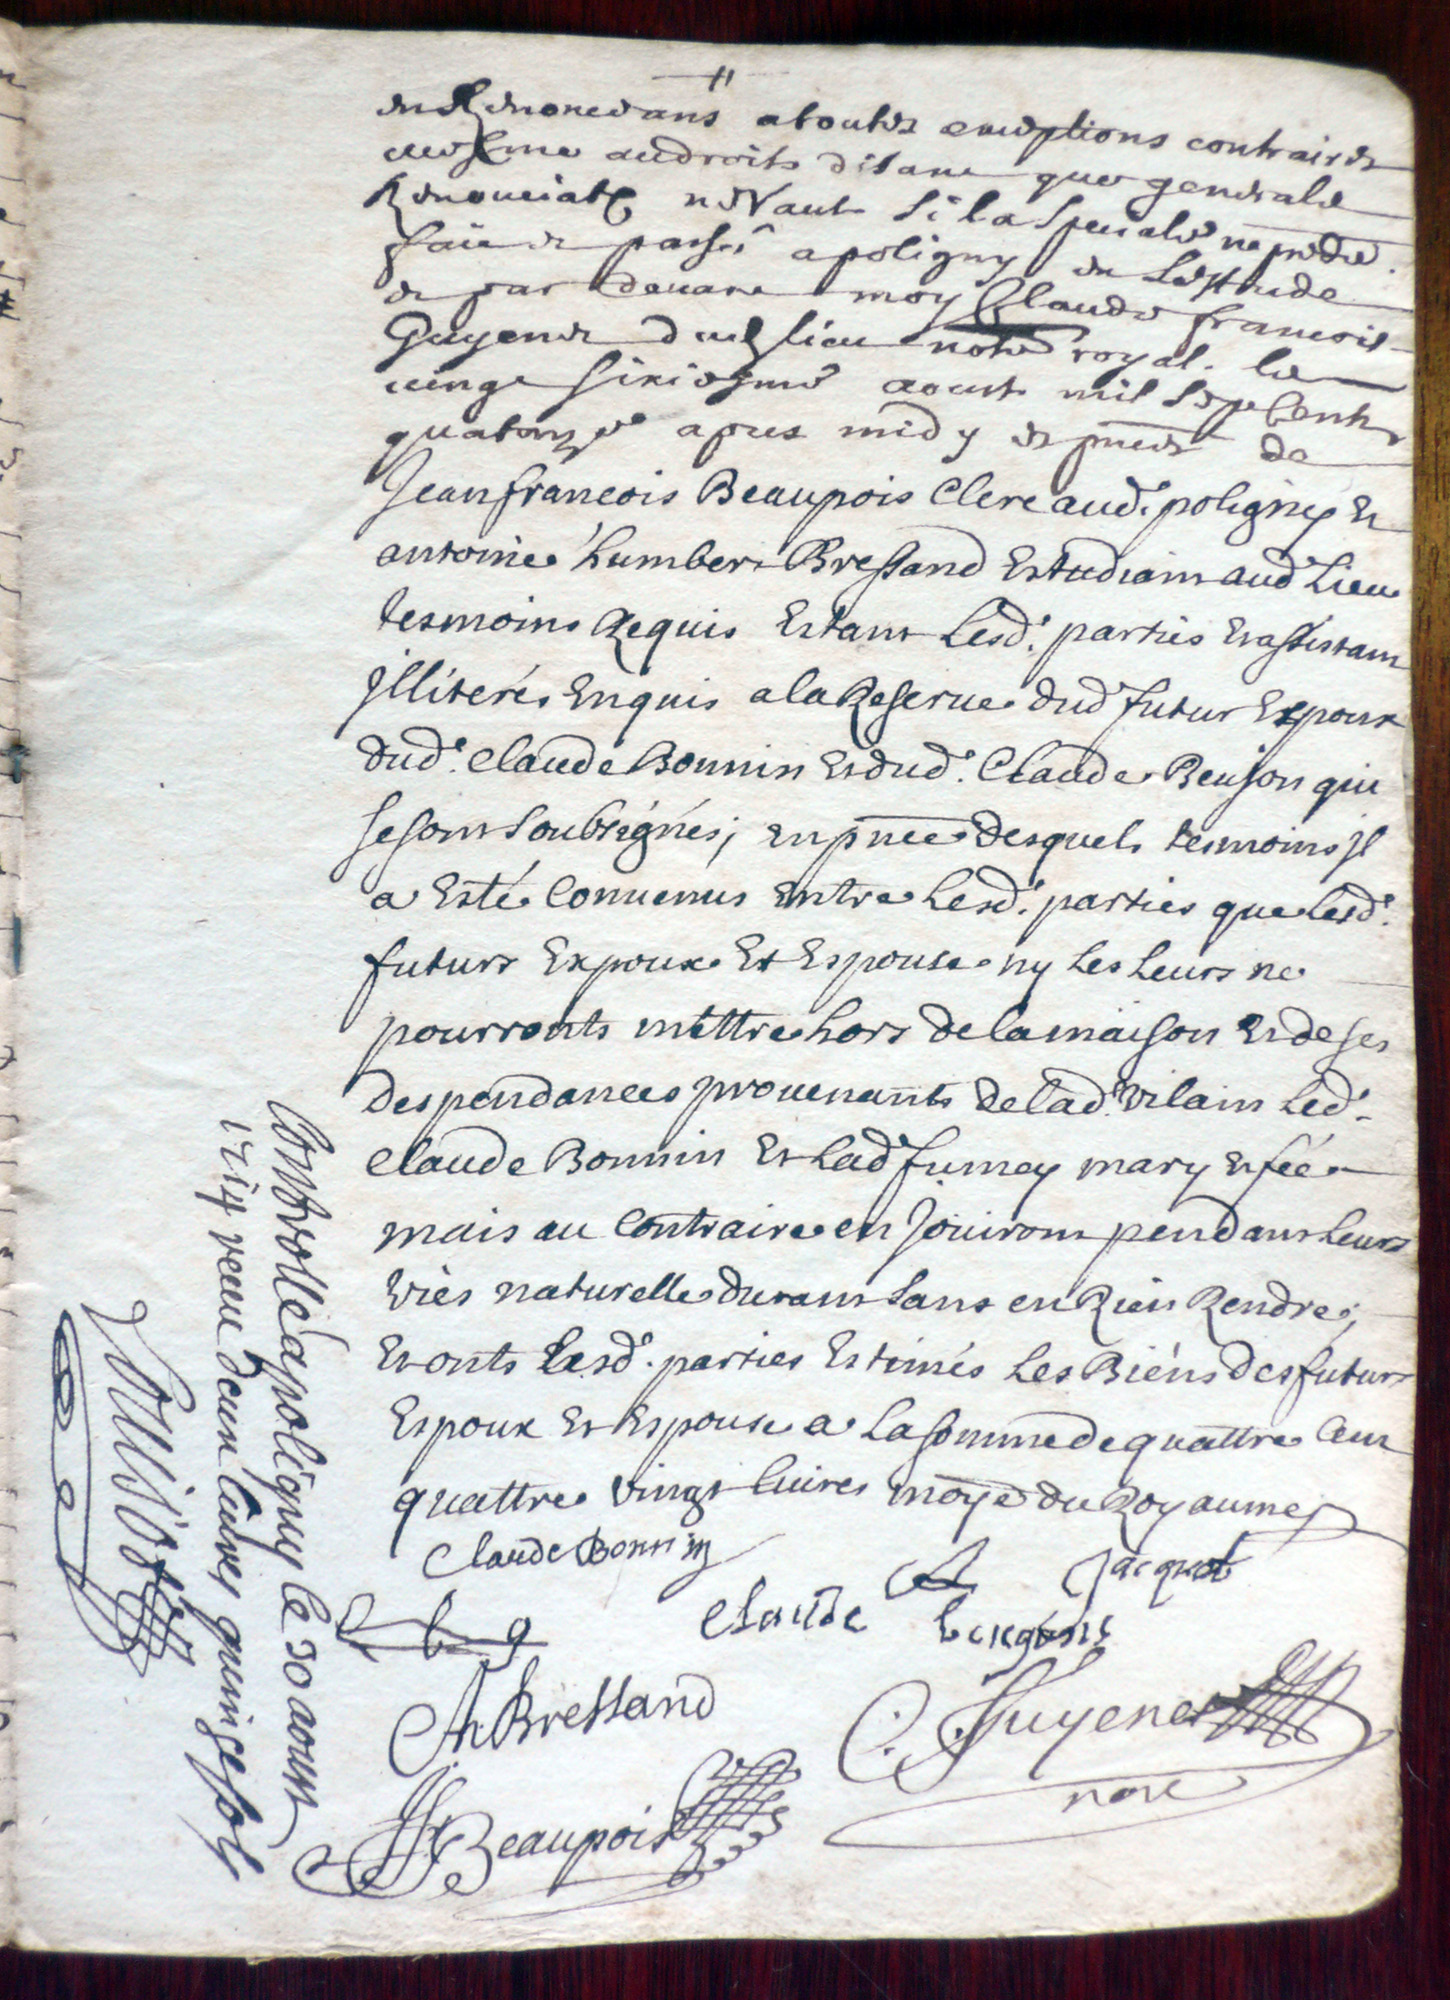 en Renoncans atoutes exceptions contraires
mesme audroits disant que generale
Renonciatõ ne Vaut si la speciale ne precede.
faict et passé apoligny en Lestude
et par devant moy Claude francois
Guyenet dud lieu notre royal. le
vingt sixiesme aoust mil sept Cents
quatorze apres midy es pnces de
Jean francois Beaupois Clerc aud. poligny Et
antoine humbert Bressand Estudiant aud Lieu
tesmoins Requis Estant Lesd. parties Et assistant
jlliterés Enquis a la Reserve dud futur Expoux
dud. Claude Bonnin Et dud. Claude Benson qui
se sont soubsignés; en pnce desquels tesmoins jl
a Esté Convenus Entre Lesd. parties que Lesd.
futurs Expoux Et Espouse ny Les Leurs ne
pourronts mettre hors de la maison Et de ses
despendances provenants de lad. Vilain Led.
Claude Bonnin Et Lad fumey mary Et fée
mais au Contraire en Jouiront pendant Leurs
vies naturelle durant sans en Rien Rendre;
Et onts Lesd. parties Estimés Les Biens des futurs
Espoux Et Espouse a La somme de quattre Cent
quattre vingt Livres monye du Royaume
Claude Bonnin
Jacquot
Claude
A Bressand
C. F. Guyenet
nore
JF Beaupois
Controllé apoligny le 30 aoust
1714 receu deux Livres quinze sols